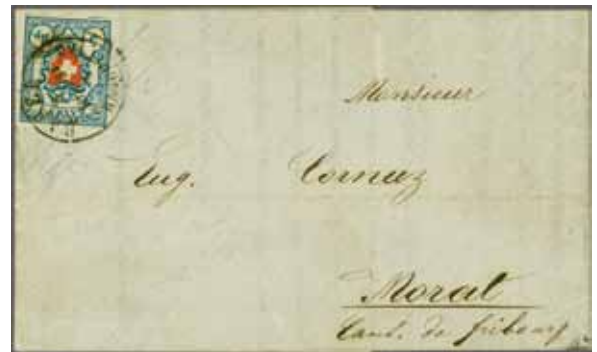 Monsieur
Eug. Cornaz
Morat
Cant. de fribourg